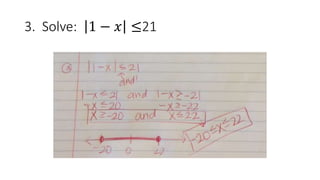 3. Solve: |1 − x| ≤21
③ |1-x| ≤ 21
and
1-x≤21 and 1-x≥-21
-x≤20 -x≥-22
x≥-20 and x≤22
-20≤x≤22
-20 0 22